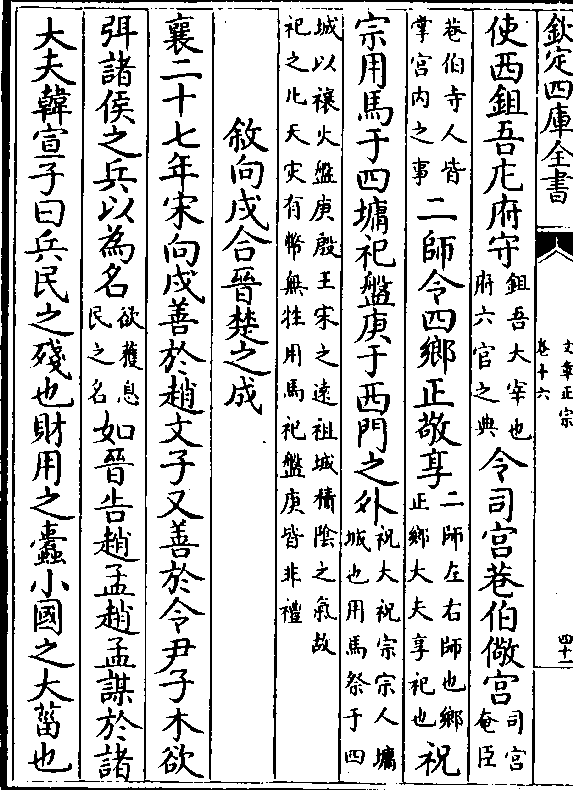 欽定四庫全書
文章正宗
卷十六
四十一
使西鉏吾庀府守鉏吾大宰也府六官之典令司宮巷伯儆宮司宮奄臣
巷伯寺人皆掌宮内之事二師令四鄉正敬享二師左右師也鄉正鄉大夫享祀也祝
宗用馬于四墉祀盤庚于西門之外祝大祝宗宗人墉城也用馬祭于四
城以禳火盤庚殷王宋之遠祖城積陰之氣故祀之凡天灾有幣無牲用馬祀盤庚皆非禮
敘向戌合晉楚之成
襄二十七年宋向戌善於趙文子又善於令尹子木欲
弭諸侯之兵以為名欲獲息民之名如晉告趙孟趙孟謀於諸
大夫韓宣子曰兵民之殘也財用之蠹小國之大菑也